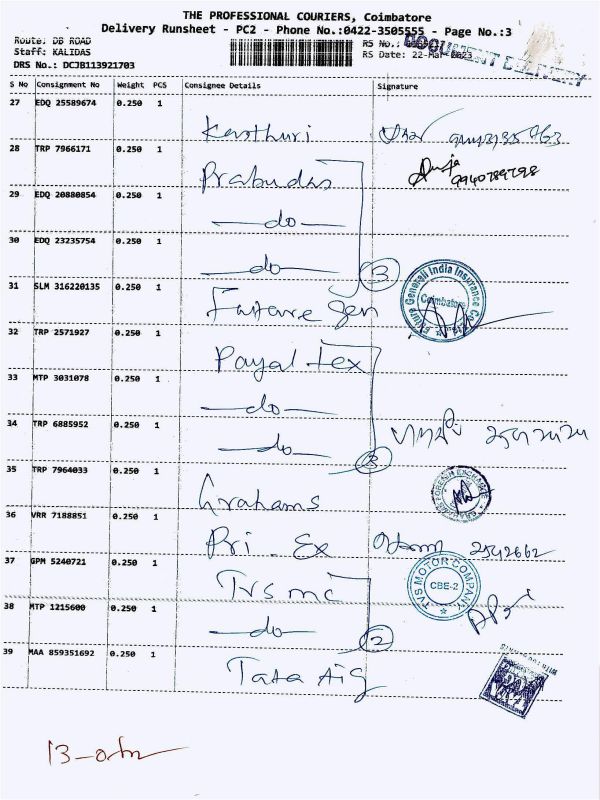 THE PROFESSIONAL COURIERS, Coimbatore
Delivery Runsheet - PC2 - Phone No.:0422-3505555 - Page No.:3
Route: DB ROAD
Staff: KALIDAS
RS No.:
DOCUMENT DELIVERY
RS Date: 22-Mar-2023
DRS No.: DCJB113921703
S No Consignment No Weight PCS Consignee Details Signature
27 EDQ 25589674 0.250 1 Kasthuri
28 TRP 7966171 0.250 1 Prabudas
9940789798
29 EDQ 20880854 0.250 1 —do—
30 EDQ 23235754 0.250 1 —do— 3
31 SLM 316220135 0.250 1 Future Gen Future Generali India Insurance Co. Coimbatore
32 TRP 2571927 0.250 1 Payal tex
33 MTP 3031078 0.250 1 —do—
34 TRP 6885952 0.250 1 —do— 3
35 TRP 7964033 0.250 1 Grahams
36 VRR 7188851 0.250 1 Pri. Ex 2542662
37 GPM 5240721 0.250 1 Tvs mc TVS MOTOR COMPANY CBE-2
38 MTP 1215600 0.250 1 —do— 2
39 MAA 859351692 0.250 1 Tata Aig